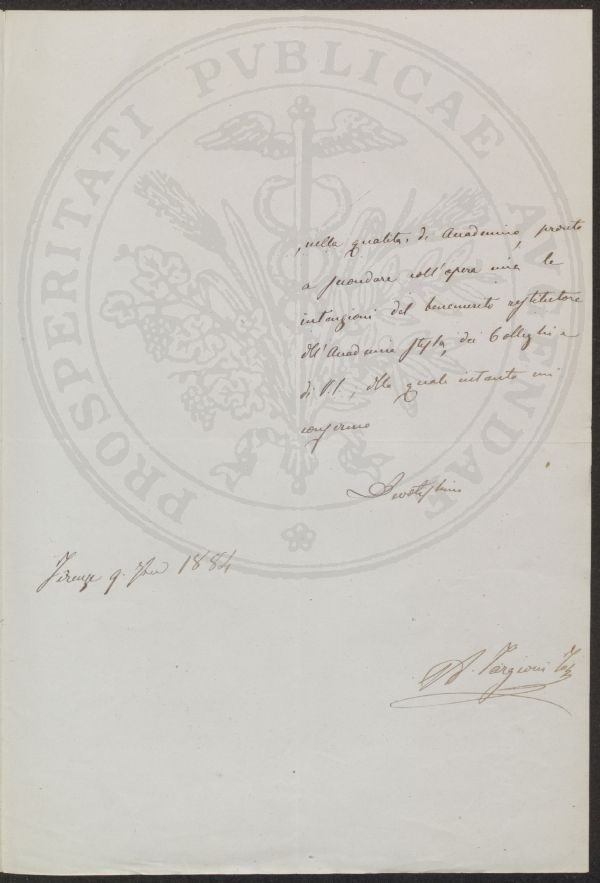 PROSPERITATI PVBLICAE AVGENDAE
, nella qualità, di Accademico, pronto
a secondare coll'opera mia le
intenzioni del benemerito restitutore
dell'Accademia stessa, dei Colleghi e
di V.S., della quale intanto mi
confermo
Devotissimo
Firenze 9. 1884
A. Targioni Toz